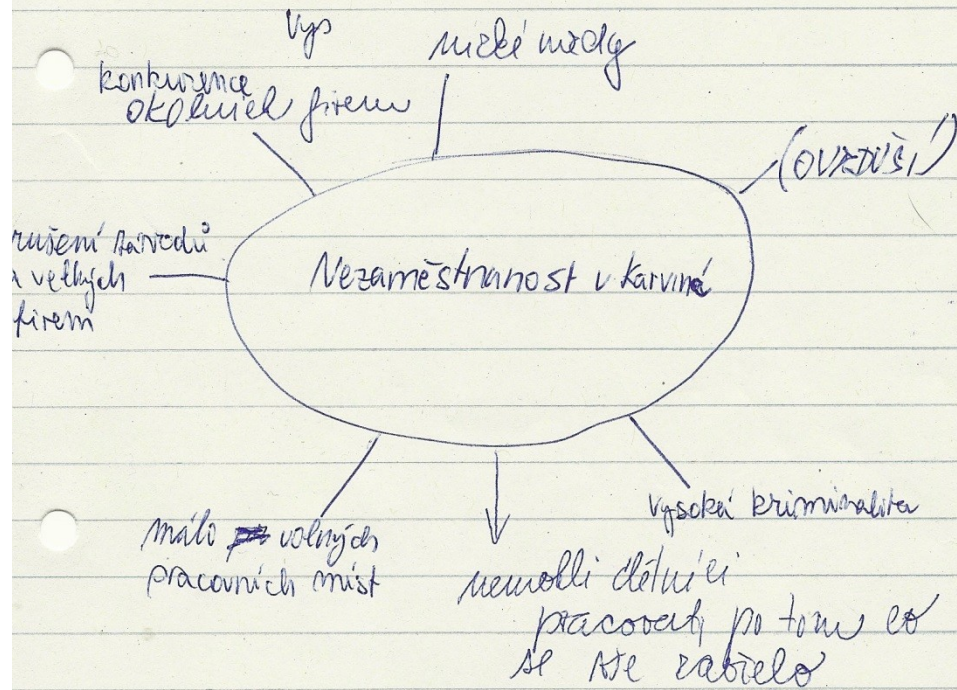 Vys
nízké mzdy
konkurence
okolních firem
(OVZDUŠÍ)
rušení závodů
a velkých
firem
Nezaměstnanost v Karviné
vysoká kriminalita
málo volných
pracovních míst
nemohli dělníci
pracovat, po tom co
se vše zavřelo